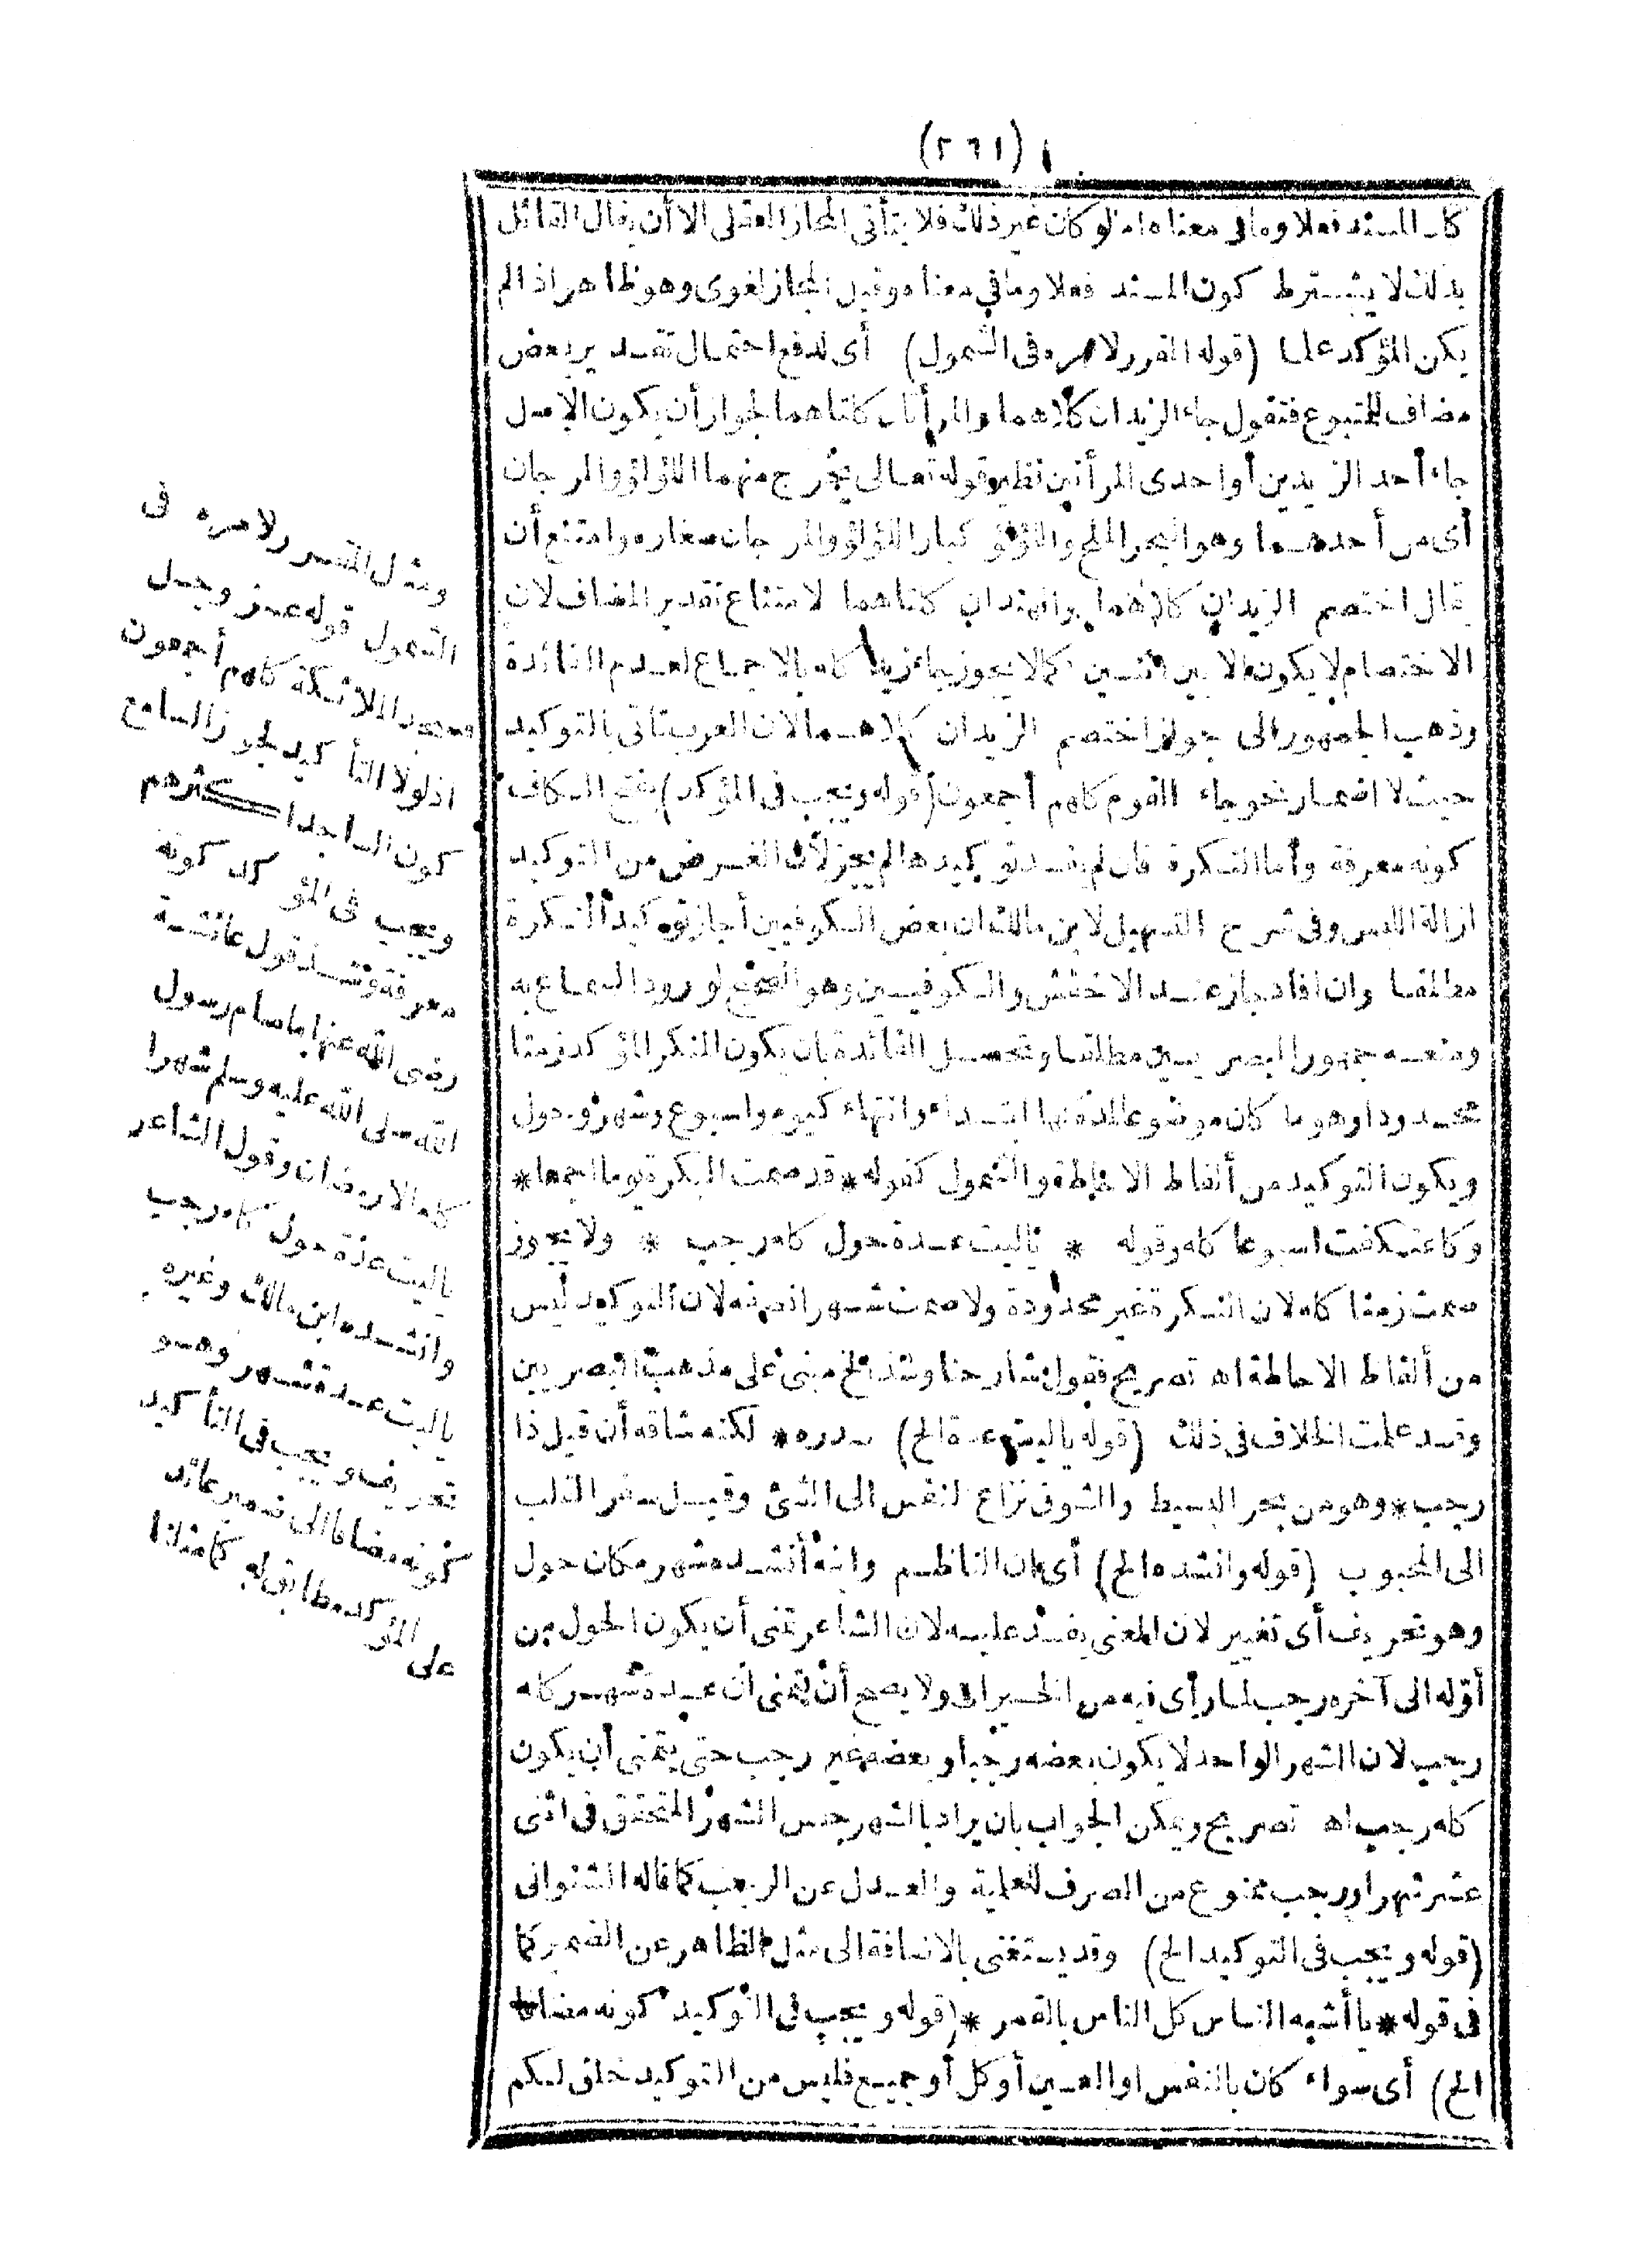 (٢٦١)
كان المسند فعلا وما في معناه اما لو كان غير ذلك فلا يتأتى المجاز العقلى الا أن يقال القائل
بذلك لا يشترط كون المسند فعلا وما في معناه وقيل المجاز لغوى وهو ظاهر اذا لم
يكن المؤكد علما (قوله المقرر لامره فى الشمول) أى لدفع احتمال تقدير بعض
مضاف للمتبوع فتقول جاء الزيدان كلاهما والمرأتان كلتاهما لجواز أن يكون الاصل
جاء أحد الزيدين أو احدى المرأتين نظير قوله تعالى يخرج منهما اللؤلؤ والمرجان
أى من أحدهما وهو البحر الملح واللؤلؤ كبار اللؤلؤ والمرجان صغاره وامتنع أن
يقال اختصم الزيدان كلاهما والهندان كلتاهما لامتناع تقدير المضاف لان
الاختصام لا يكون الا بين اثنين كما لا يجوز جاء زيد كله بالاجماع لعدم الفائدة
وذهب الجمهور الى جواز اختصم الزيدان كلاهما لان العرب تأتى بالتوكيد
حيث لا اضمار نحو جاء القوم كلهم أجمعون (قوله ويجب فى المؤكد) بفتح الكاف
كونه معرفة وأما النكرة فان لم يفد توكيدها لم يجز لأن الغرض من التوكيد
ازالة اللبس وفى شرح التسهيل لابن مالك ان بعض الكوفيين أجاز توكيد النكرة
مطلقا وان افاد جاز عند الاخفش والكوفيين وهو الصحيح لورود السماع به
ومنعه جمهور البصريين مطلقا وتحصل الفائدة بان يكون المنكر المؤكد زمنا
محدودا وهو ما كان موضوعا لمدة لها ابتداء وانتهاء كيوم واسبوع وشهر وحول
ويكون التوكيد من ألفاظ الاحاطة والشمول كقوله * قد صمت البكرة يوما اجمعا *
وكاعتكفت اسبوعا كله وقوله * ياليت عدة حول كله رجب * ولا يجوز
صمت زمنا كله لان النكرة غير محدودة ولا صمت شهرا نصفه لان التوكيد ليس
من ألفاظ الاحاطة اه تصريح فقول شارحنا وشذ الخ مبنى على مذهب البصريين
وقد علمت الخلاف فى ذلك (قوله ياليت عدة الخ) صدره * لكنه شاقه أن قيل ذا
رجب * وهو من بحر البسيط والشوق نزاع النفس الى الشئ وقيل سفر القلب
الى المحبوب (قوله وانشده الخ) أى ابن الناظم وابنه أنشده شهر مكان حول
وهو تحريف أى تغيير لان المعنى يفسد عليه لان الشاعر تمنى أن يكون الحول من
أوّله الى آخره رجب لما رأى فيه من الخيرات ولا يصح أن يتمنى ان عدة شهر كله
رجب لان الشهر الواحد لا يكون بعضه رجبا وبعضه غير رجب حتى يتمنى أن يكون
كله رجب اه تصريح ويمكن الجواب بان يراد بالشهر جنس الشهر المتحقق فى اثنى
عشر شهرا ورجب ممنوع من الصرف للعلمية والعدل عن الرجب كما قاله الشنوانى
(قوله ويجب فى التوكيد الخ) وقد يستغنى بالاضافة الى مثل الظاهر عن الضمير كما
فى قوله * يا أشبه الناس كل الناس بالقمر * (قوله ويجب فى التوكيد كونه مضافا
الخ) أى سواء كان بالنفس او العين أو كل أو جميع فليس من التوكيد خلق لكم
ومثل المقرر لامره فى
الشمول قوله عز وجل
فسجد الملائكة كلهم أجمعون
اذ لولا التأكيد لجوز السامع
كون الساجد اكثرهم
ويجب فى المؤكد كونه
معرفة وشذ قول عائشة
رضى الله عنها ما صام رسول
الله صلى الله عليه وسلم شهرا
كله الا رمضان وقول الشاعر
ياليت عدة حول كله رجب
وانشده ابن مالك وغيره
ياليت عدة شهر وهو
تحريف ويجب فى التأكيد
كونه مضافا الى ضمير عائد
على المؤكد مطابق له كما مثلنا